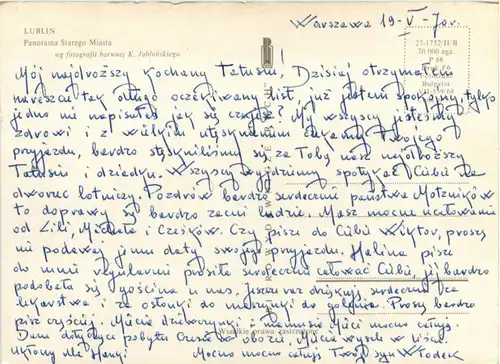 LUBLIN
Panorama Starego Miasta
wg fotografii barwnej K. Jabłońskiego
Warszawa 19-V-70 r.
27-1752/II/B
70 000 egz.
P 66
Mój najdroższy Kochany Tatusiu! Dzisiaj otrzymałem
nareszcie tak długo oczekiwany list, już jestem spokojny, tylko
jedno nie napisałeś jak się czujesz? My wszyscy jesteśmy
zdrowi i z wielkim utęsknieniem czekamy Twojego
przyjazdu, bardzo stęskniliśmy się za Tobą nasz najdroższy
Tatusiu i dziadku. Wszyscy wyjdziemy spotykać Ciebie na
dworzec lotniczy. Pozdrów bardzo serdecznie państwa
to doprawdy są bardzo zacni ludzie. Masz mocne ucałowania
od Lili, Michała i Cześków. Czy pisze do Ciebie Wiktor, proszę
mi podawaj jemu datę swojego przyjazdu. Halina pisze
do mnie regularnie prosiła serdecznie całować Ciebie, jej bardzo
podobała się gościna u nas, jeszcze raz dziękuję serdecznie za
lekarstwa i za do maszynki do golenia. Proszę bardzo
pisz częściej, i mamusię mocno całuję.
Dani pobytu Cześka w obozie, wysłał w liście.
Wszelkie prawa zastrzeżone
Mocno mocno całuję Twój syn Władek